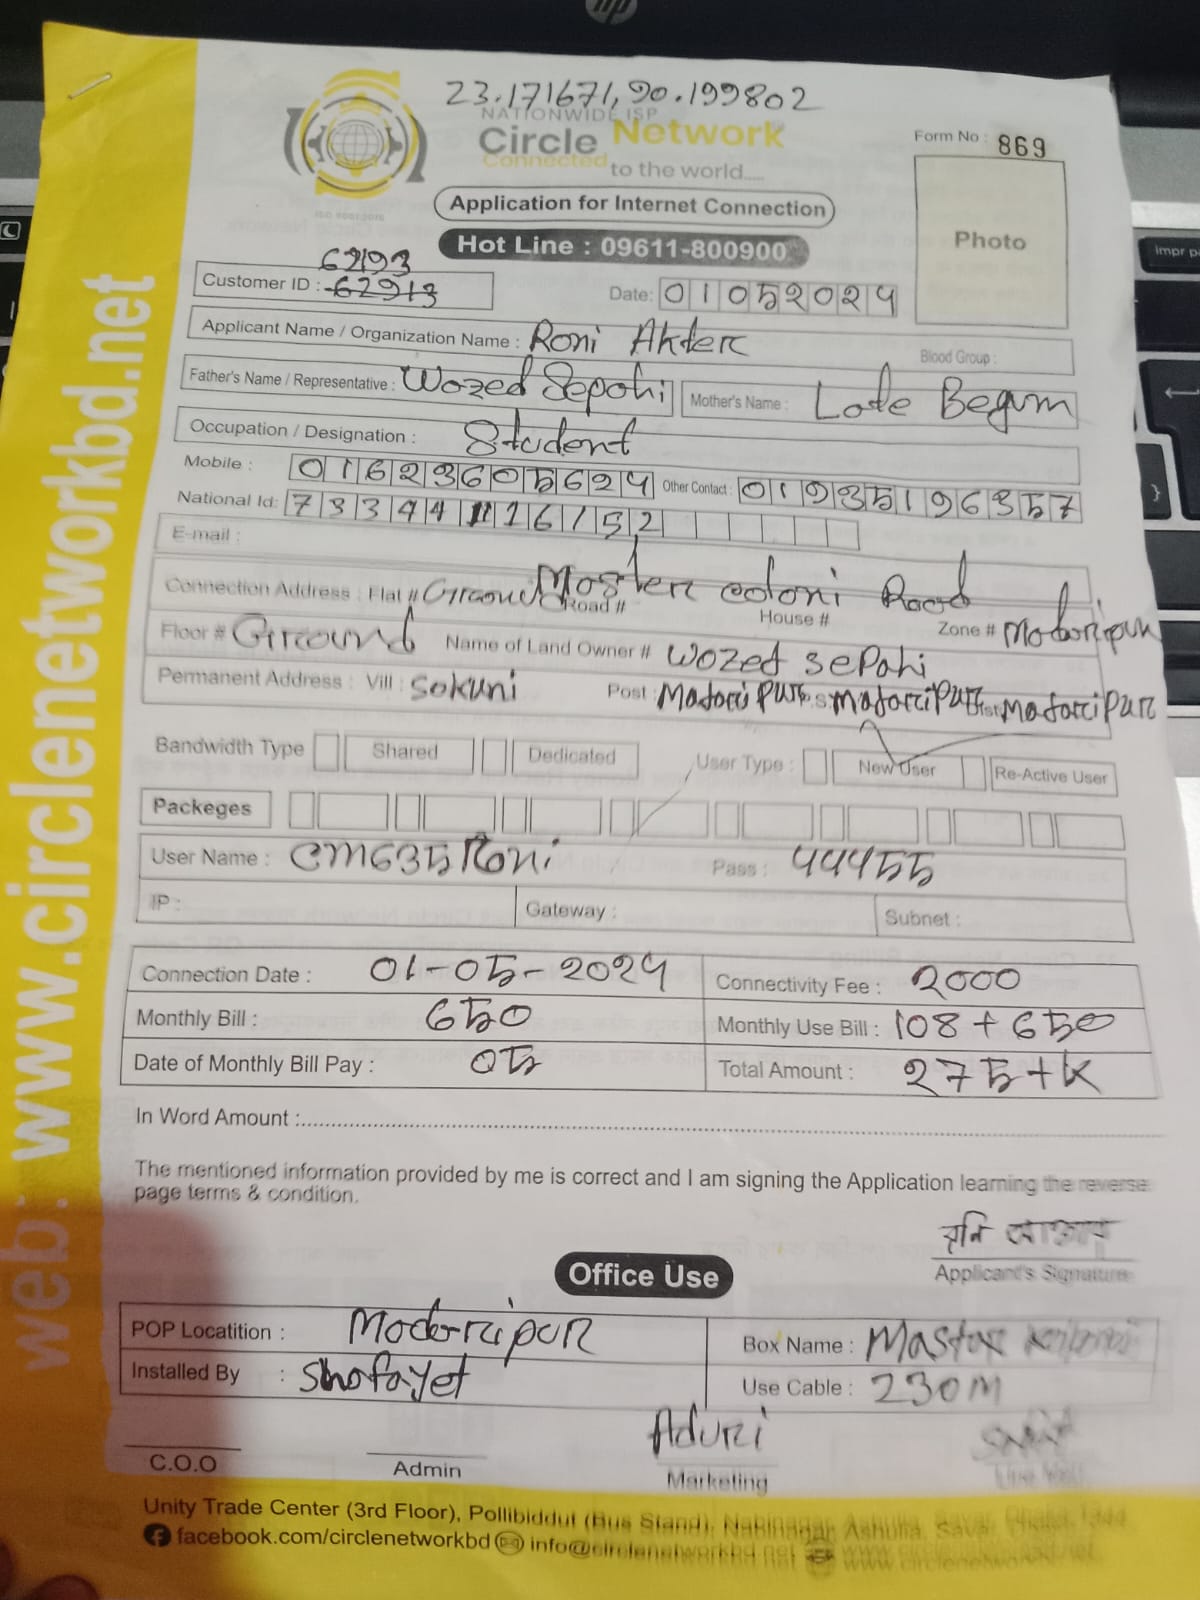 hp
23.171671, 90.199802
NATIONWIDE ISP
Circle Network
Connected to the world.....
Form No : 869
Photo
Application for Internet Connection
Hot Line : 09611-800900
62193
Customer ID : 62913
Date: 01052024
Applicant Name / Organization Name : Roni Akter
Blood Group :
Father's Name / Representative : Wozed Sepohi
Mother's Name : Lote Begum
Occupation / Designation : Student
Mobile : 01623605624 Other Contact : 01935196357
National Id: 7334411616152
E-mail :
Connection Address : Flat # Ground Road # Master coloni Road House #
Floor # Ground Name of Land Owner # Wozed Sepahi Zone # Modoripur
Permanent Address : Vill : Sokuni Post : Madaripur P.S: Madaripur Dist: Madaripur
Bandwidth Type Shared Dedicated User Type : New User Re-Active User
Packeges
User Name : CM635Roni Pass : 44455
IP : Gateway : Subnet :
Connection Date : 01-05-2024 Connectivity Fee : 2000
Monthly Bill : 650 Monthly Use Bill : 108 + 650
Date of Monthly Bill Pay : 05 Total Amount : 275tk
In Word Amount :
The mentioned information provided by me is correct and I am signing the Application learning the reverse
page terms & condition.
রুনি আক্তার
Applicant's Signature
Office Use
POP Locatition : Modoripur Box Name : Master
Installed By : Shofayet Use Cable : 230M
Aduri
C.O.O Admin Marketing
Unity Trade Center (3rd Floor), Pollibiddut (Bus Stand), Nabinagar, Ashulia, Savar, Dhaka, 1344
facebook.com/circlenetworkbd info@circlenetworkbd.net www.circlenetworkbd.net
web: www.circlenetworkbd.net